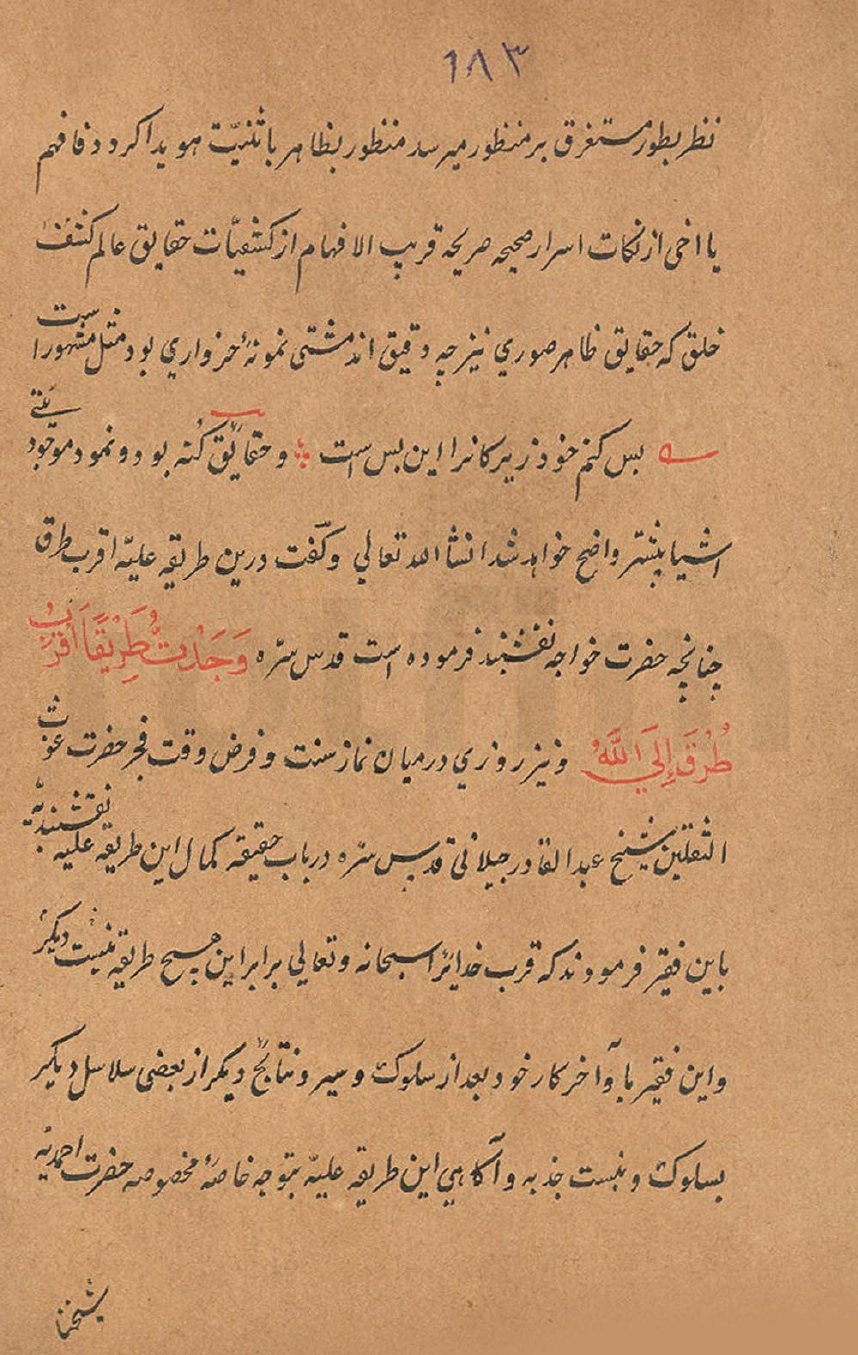 ١٨٣
نظر بطور مستغرق بر منظور میرسد منظور بظاهر باثنیّت هویدا کردد فافهم
یا اخی از نکات اسرار صحیحه صریحه قریب الافهام از کشفیّات حقایق عالم کشف
خلق که حقایق ظاهر صوري نیز چه دقیق اند مشتی نمونۀ خرواري بود مثل مشهورا ست
بس کنم خود زیرکانرا این بس است و حقایق کُنه بود و نمود موجود یّتے
اشیا پیشتر واضح خواهد شد انشا الله تعالي و کَفت درین طریقه علیّه اقرب طرق
چنانچه حضرت خواجه نقشبند فرموده است قدس سرّه وَجَدْتُ طَرِیْقًا اَقْرَبُ
طُرُقِ اِلَي اللّٰهِ و نیز روزي درمیان نماز سنت و فرض وقت فجر حضرت غوث
الثقلین شیخ عبد القادر جیلانی قدس سرّه درباب حقیقه کمال این طریقه علیه نقشبندیّه
باین فقیر فرمودند که قرب خدائرا سبحانه و تعالي برابر این هیچ طریقه نیست دیکر
و این فقیر با آخر کار خود بعد از سلوک و سیر و نتائج دیکر از بعضی سلاسل دیکر
بسلوک و نسبت جذبه و آکاهي این طریقه علیّه بتوجه خاصّۀ مخصوصه حضرت احمدیّه
شیخنا